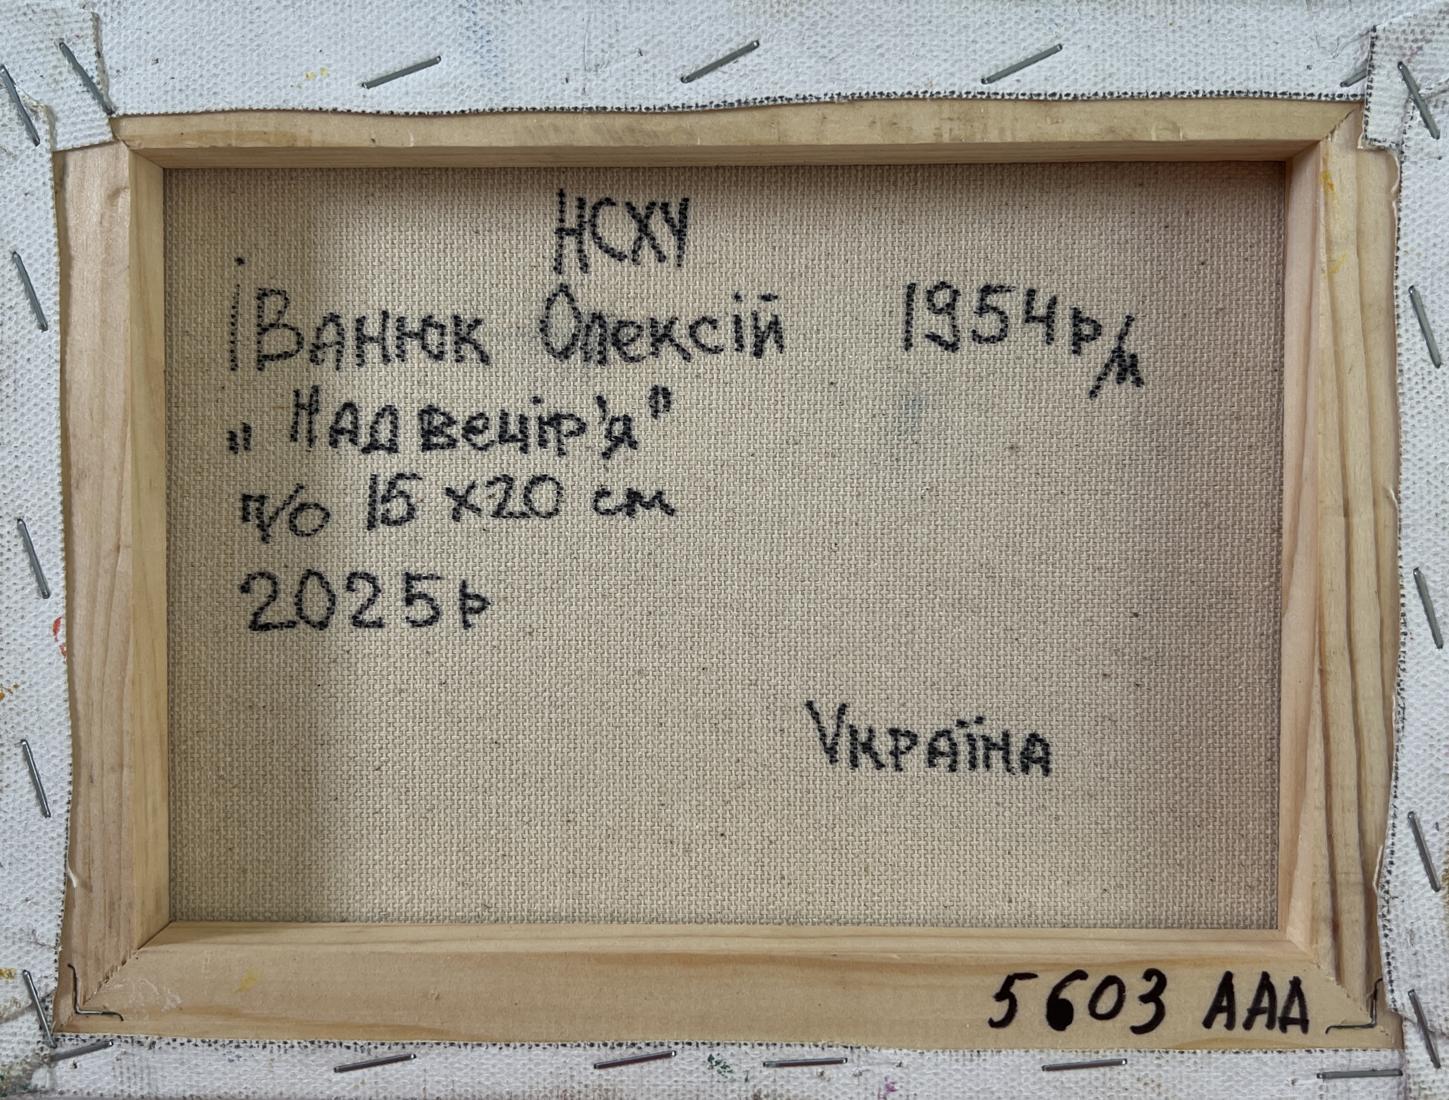 НСХУ
Іванюк Олексій 1954 р/м
„Надвечір'я"
п/о 15 х 20 см
2025 р
Україна
5603 ААА